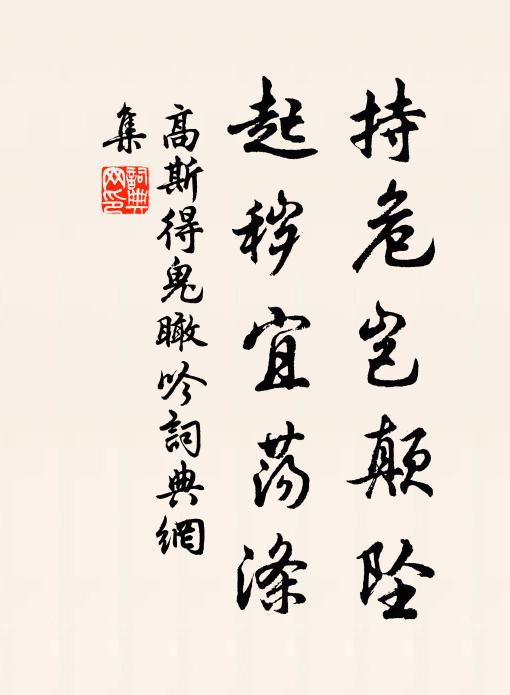 持危岂颠坠
起秽宜荡涤
高斯得鬼瞰吟詞典網
集
詞典
网印